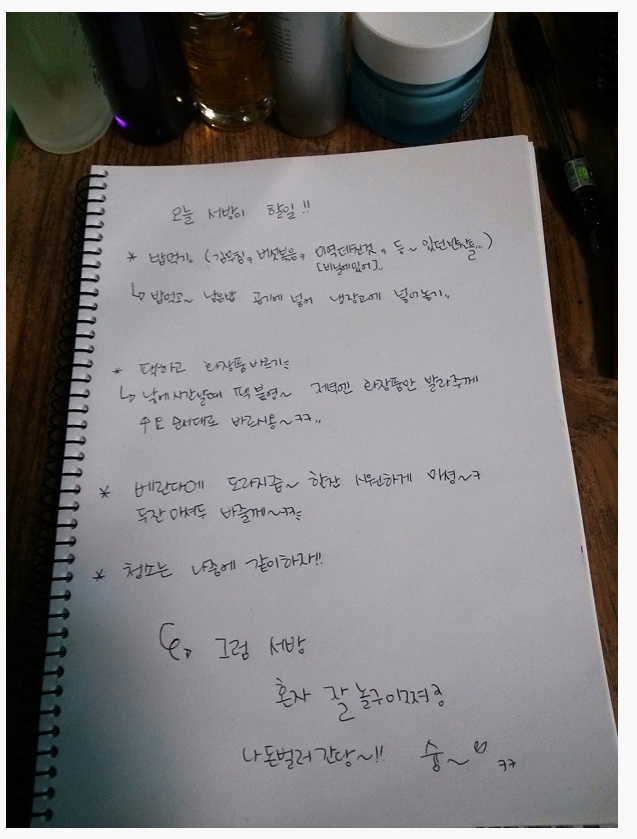 오늘 서방이 할일!!
* 밥먹기 (김무침, 버섯볶음, 미역데친것, 등~ 있던반찬들...)
[비닐에있어]..
↳ 밥먹고~ 남은밥 공기에 넣어 냉장고에 넣어놓기..
* 팩하고 화장품바르기
↳ 낮에 시간날때 팩 붙영~ 저녁엔 화장품만 발라주께
순서대로 바르시용~ㅋㅋ..
* 베란다에 도라지즙~ 한잔 시원하게 마셩~ㅋ
두잔 마셔두 바줄께~ㅋㅋ
* 청소는 나중에 같이하자!!
그럼 서방
혼자 잘 놀구이쪄용
나돈벌러간당~!! 슝~ ㅋㅋ